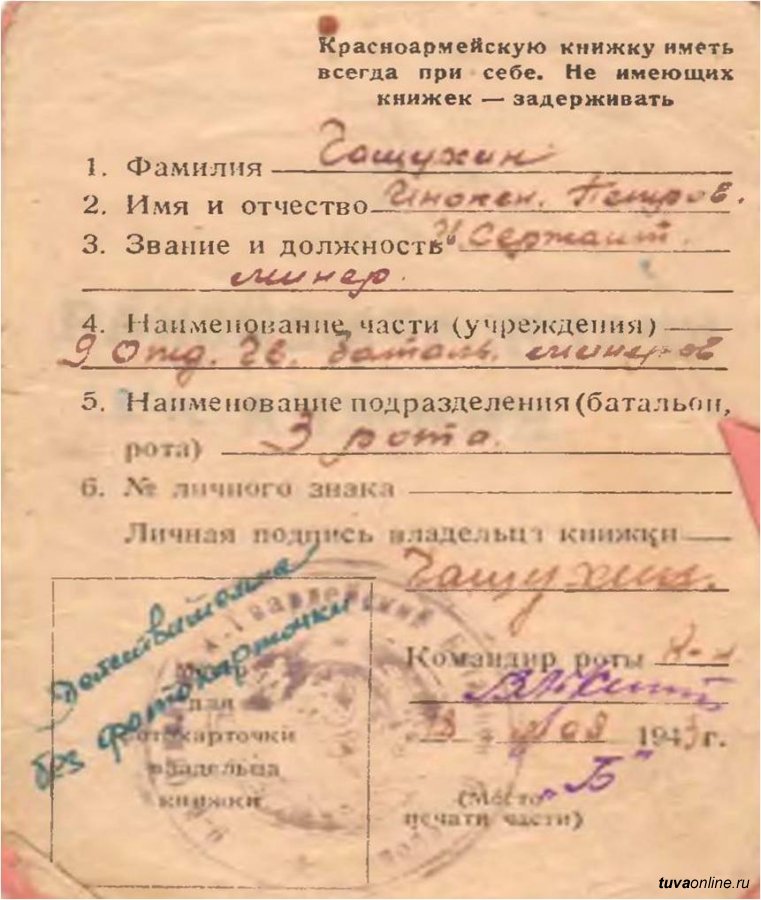 Красноармейскую книжку иметь
всегда при себе. Не имеющих
книжек — задерживать
1. Фамилия Гашухин
2. Имя и отчество Инокен. Петров.
3. Звание и должность Сержант.
минер.
4. Наименование части (учреждения)
9 Отд. Гв. баталь. минеров
5. Наименование подразделения (батальон,
рота) 3 рота.
6. № личного знака
Личная подпись владельца книжки
Действительна
без фотокарточки
Место
для
фотокарточки
владельца
книжки
Командир роты
мая 1943 г.
"Б"
(Место
печати части)
tuvaonline.ru